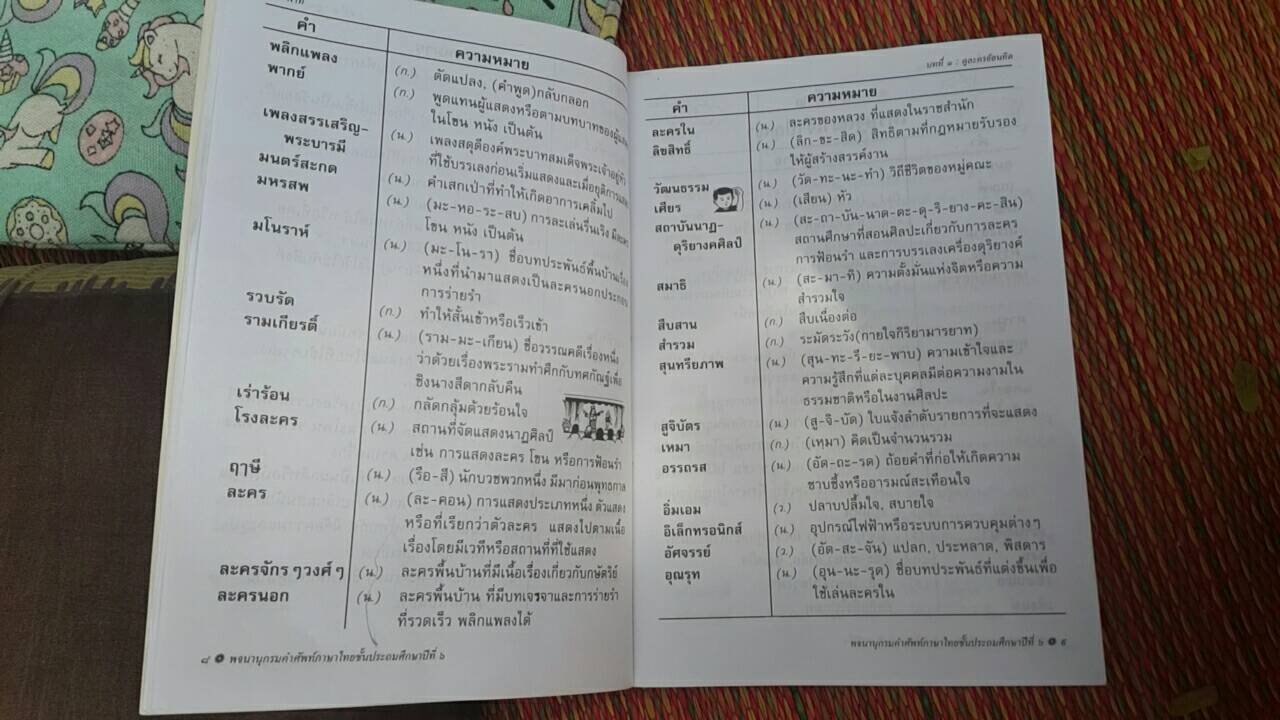 คำ ความหมาย
พลิกแพลง (ก.) ดัดแปลง, (คำพูด)กลับกลอก
พากย์ (ก.) พูดแทนผู้แสดงหรือตามบทบาทของผู้แสดง
ในโขน หนัง เป็นต้น
เพลงสรรเสริญ- (น.) เพลงสดุดีองค์พระบาทสมเด็จพระเจ้าอยู่หัว
พระบารมี ที่ใช้บรรเลงก่อนเริ่มแสดงและเมื่อยุติการแสดง
มนตร์สะกด (น.) คำเสกเป่าที่ทำให้เกิดอาการเคลิ้มไป
มหรสพ (น.) (มะ-หอ-ระ-สบ) การละเล่นรื่นเริง มีละคร
โขน หนัง เป็นต้น
มโนราห์ (น.) (มะ-โน-รา) ชื่อบทประพันธ์พื้นบ้านเรื่อง
หนึ่งที่นำมาแสดงเป็นละครนอกประกอบ
การร่ายรำ
รวบรัด (ก.) ทำให้สั้นเข้าหรือเร็วเข้า
รามเกียรติ์ (น.) (ราม-มะ-เกียน) ชื่อวรรณคดีเรื่องหนึ่ง
ว่าด้วยเรื่องพระรามทำศึกกับทศกัณฐ์เพื่อ
ชิงนางสีดากลับคืน
เร่าร้อน (ก.) กลัดกลุ้มด้วยร้อนใจ
โรงละคร (น.) สถานที่จัดแสดงนาฏศิลป์
เช่น การแสดงละคร โขน หรือการฟ้อนรำ
ฤๅษี (น.) (รือ-สี) นักบวชพวกหนึ่ง มีมาก่อนพุทธกาล
ละคร (น.) (ละ-คอน) การแสดงประเภทหนึ่ง ตัวแสดง
หรือที่เรียกว่าตัวละคร แสดงไปตามเนื้อ
เรื่องโดยมีเวทีหรือสถานที่ที่ใช้แสดง
ละครจักร ๆวงศ์ ๆ (น.) ละครพื้นบ้านที่มีเนื้อเรื่องเกี่ยวกับกษัตริย์
ละครนอก (น.) ละครพื้นบ้าน ที่มีบทเจรจาและการร่ายรำ
ที่รวดเร็ว พลิกแพลงได้
๘ พจนานุกรมคำศัพท์ภาษาไทยชั้นประถมศึกษาปีที่ ๖
บทที่ ๑ : ดูละครย้อนคิด
คำ ความหมาย
ละครใน (น.) ละครของหลวง ที่แสดงในราชสำนัก
ลิขสิทธิ์ (น.) (ลิก-ขะ-สิด) สิทธิตามที่กฎหมายรับรอง
ให้ผู้สร้างสรรค์งาน
วัฒนธรรม (น.) (วัด-ทะ-นะ-ทำ) วิถีชีวิตของหมู่คณะ
เศียร (น.) (เสียน) หัว
สถาบันนาฏ- (น.) (สะ-ถา-บัน-นาด-ตะ-ดุ-ริ-ยาง-คะ-สิน)
ดุริยางคศิลป์ สถานศึกษาที่สอนศิลปะเกี่ยวกับการละคร
การฟ้อนรำ และการบรรเลงเครื่องดุริยางค์
สมาธิ (น.) (สะ-มา-ทิ) ความตั้งมั่นแห่งจิตหรือความ
สำรวมใจ
สืบสาน (ก.) สืบเนื่องต่อ
สำรวม (ก.) ระมัดระวัง(กายใจกิริยามารยาท)
สุนทรียภาพ (น.) (สุน-ทะ-รี-ยะ-พาบ) ความเข้าใจและ
ความรู้สึกที่แต่ละบุคคลมีต่อความงามใน
ธรรมชาติหรือในงานศิลปะ
สูจิบัตร (น.) (สู-จิ-บัด) ใบแจ้งลำดับรายการที่จะแสดง
เหมา (ก.) (เหฺมา) คิดเป็นจำนวนรวม
อรรถรส (น.) (อัด-ถะ-รด) ถ้อยคำที่ก่อให้เกิดความ
ซาบซึ้งหรืออารมณ์สะเทือนใจ
อิ่มเอม (ว.) ปลาบปลื้มใจ, สบายใจ
อิเล็กทรอนิกส์ (น.) อุปกรณ์ไฟฟ้าหรือระบบการควบคุมต่างๆ
อัศจรรย์ (ว.) (อัด-สะ-จัน) แปลก, ประหลาด, พิสดาร
อุณรุท (น.) (อุน-นะ-รุด) ชื่อบทประพันธ์ที่แต่งขึ้นเพื่อ
ใช้เล่นละครใน
พจนานุกรมคำศัพท์ภาษาไทยชั้นประถมศึกษาปีที่ ๖ ๙